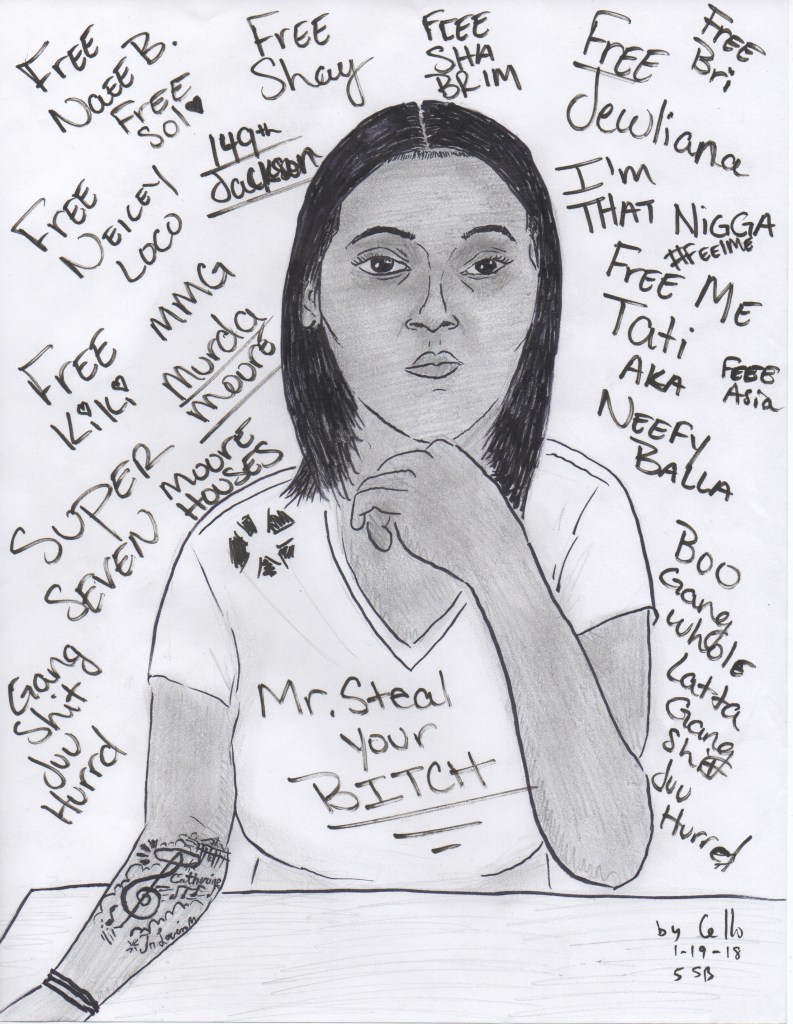 FREE
NaEE B.
FREE
Sol
FREE
Shay
FREE
SHA
BRIM
FREE
Jewliana
FREE
Bri
149th
Jackson
FREE
NEICEY
LOCO
I'm
THAT NiGGA
#FEEIME
FREE ME
Tati
AKA
NEEFY
BALLA
FEEE
Asia
MMG
Murda
Moore
FREE
KiKi
SUPER
SEVEN
MOORE
HOUSES
Gang
Shit
Juu
Hurrd
BOO
Gang
WhOlE
Latta
Gang
Shit
Juu
Hurrd
Mr. Steal
your
BITCH
Catherine
In Loving
by Cello
1-19-18
5 SB